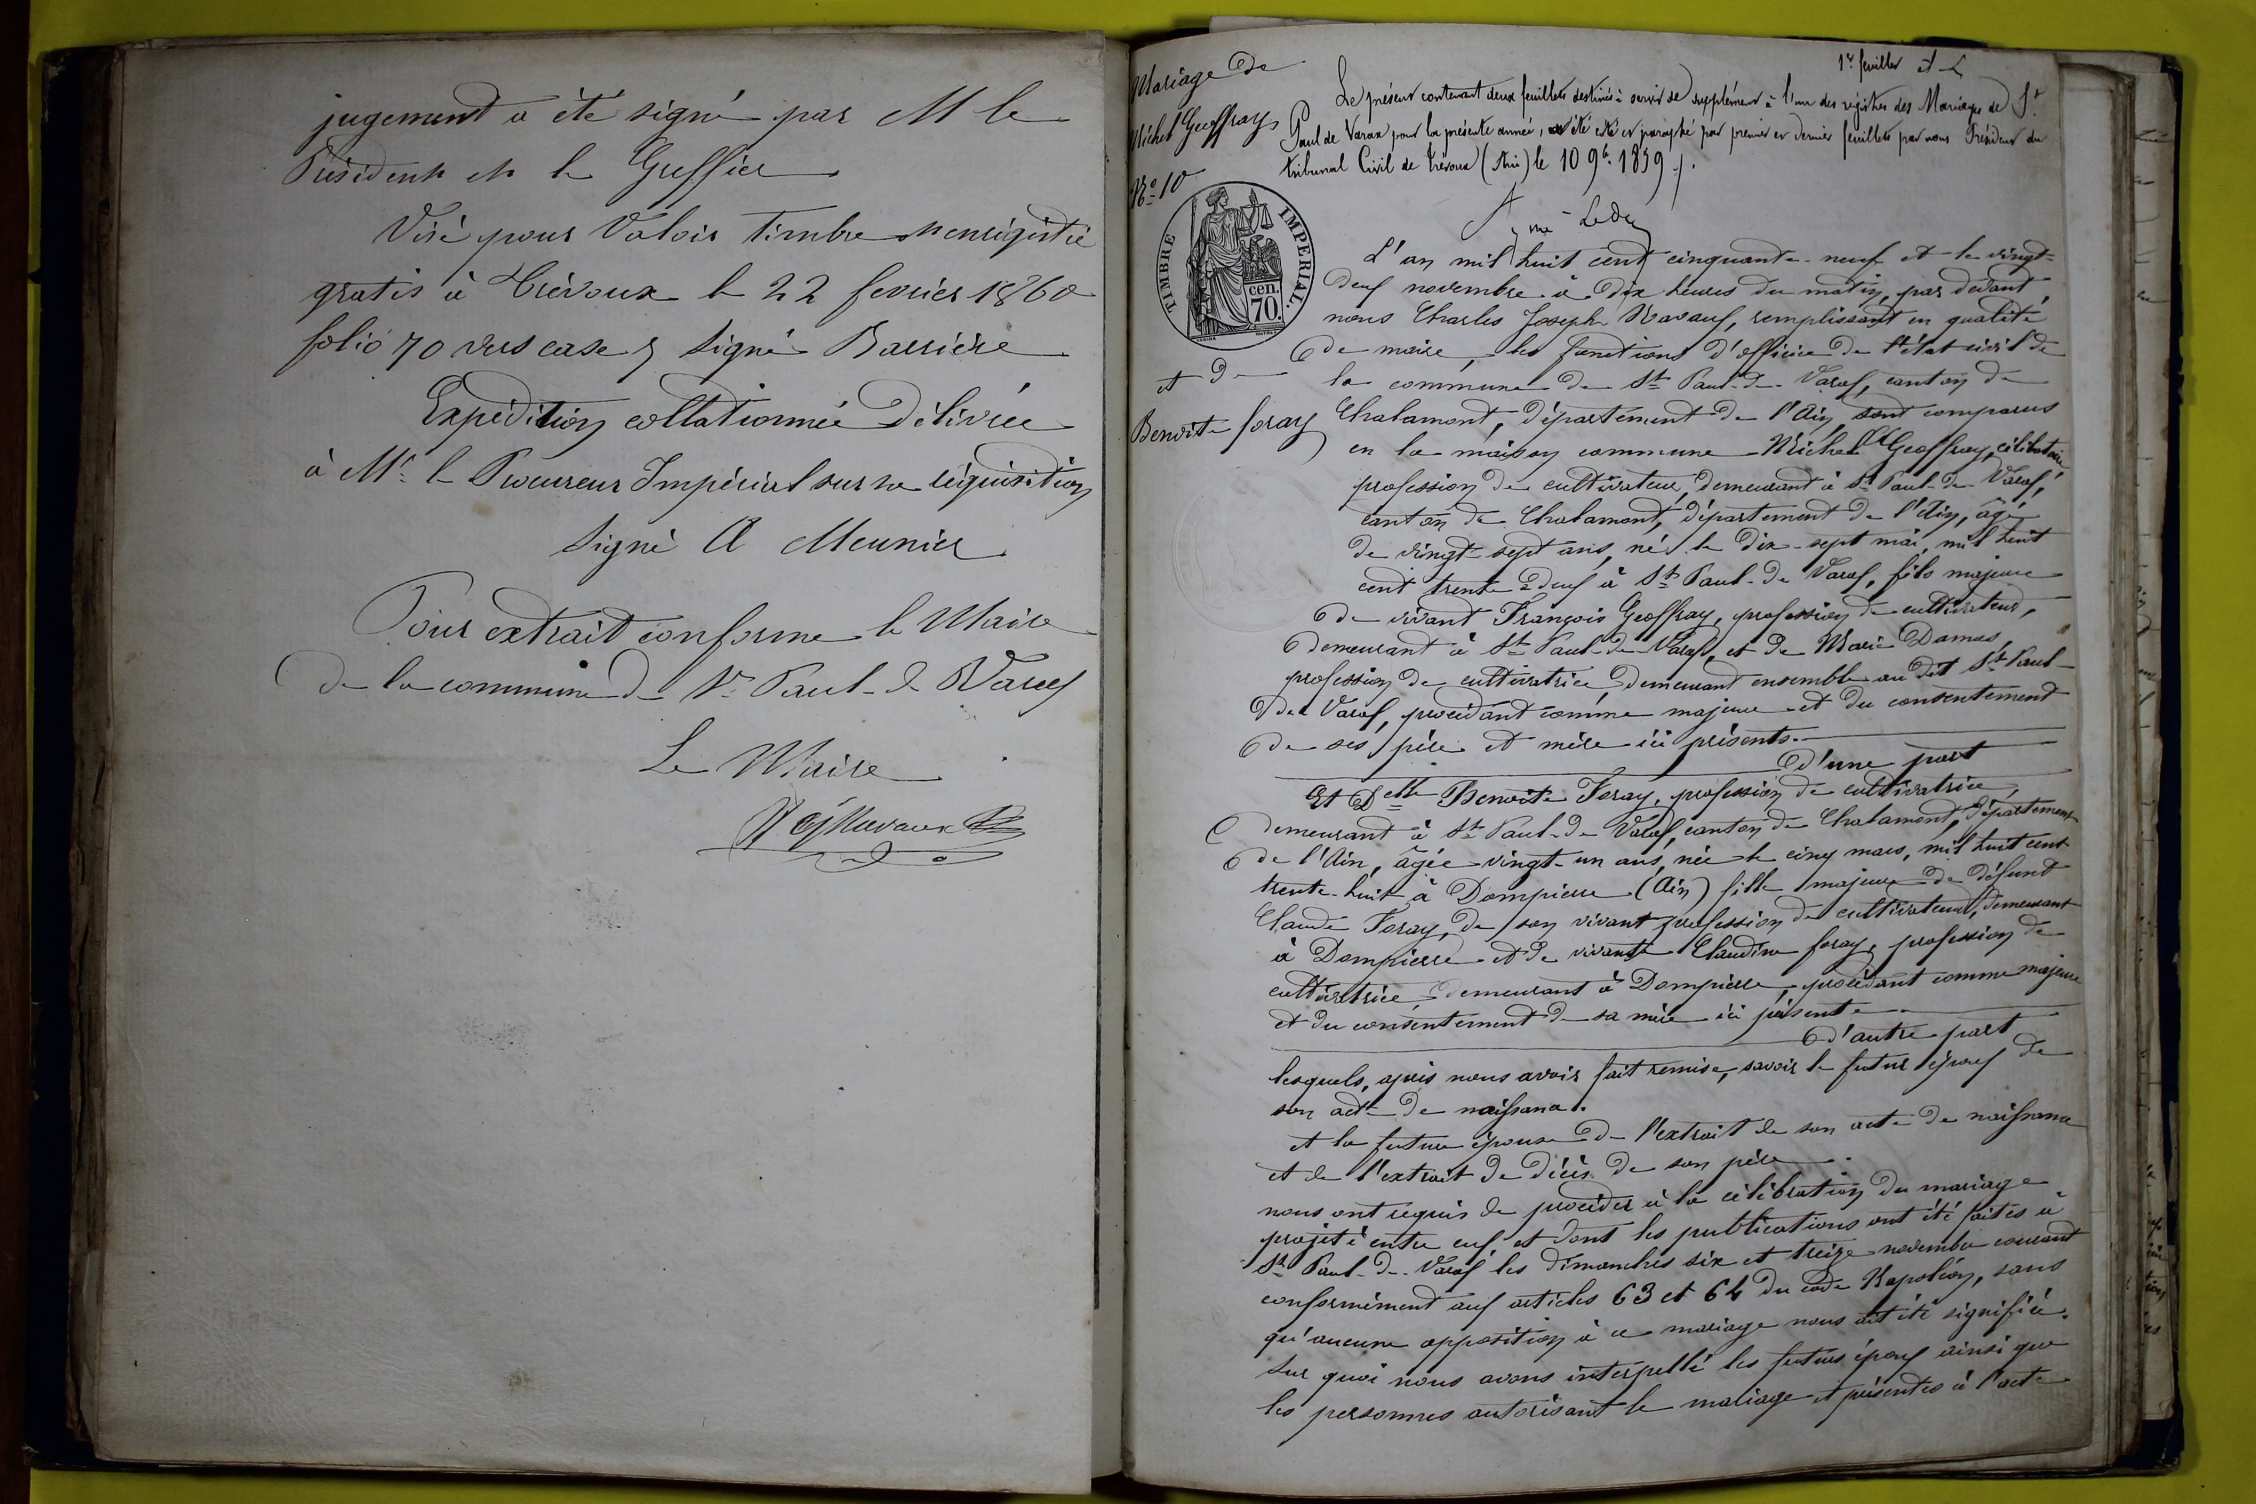 jugement a été signé par M le
Président et le Greffier
Visé pour Valoir timbre et enrégistré
gratis à Trévoux le 22 fevrier 1860
folio 70 vers case 5 signé Barrière
Expédition collationnée Délivrée
à Mr le Procureur Impérial sur sa réquisition
signé A Meunier
Pour extrait conforme le Maire
de la commune de St Paul-de Varax
Le Maire
1er feuillet
Mariage de
Michel Geoffray
No 10
et de
Benoite foray
Le présent contenant deux feuillets destinés à servir de supplément à l'un des régistres des Mariages de St
Paul de Varax pour la présente année, a été coté et paraphé par premier et dernier feuillets par nous Président du
tribunal Civil de Trévoux (Ain) le 10 9bre 1859.
TIMBRE IMPERIAL.
cen.
70.
L'an mil huit cent cinquante-neuf et le vingt-
deux novembre à dix heures du matin, par devant
nous Charles Joseph Navaux, remplissant en qualité
de maire, les fonctions d'officier de l'état civil de
la commune de St Paul-de-Varax, canton de
Chalamont, département de l'Ain, sont comparus
en la maison commune Michel Geoffray, célibataire,
profession de cultivateur, demeurant à St Paul-de Varax,
canton de Chalamont, département de l'Ain, âgé
de vingt-sept ans, né le dix-sept mai, mil huit
cent trente-deux à St Paul-de Varax, fils majeur
de vivant François Geoffray, profession de cultivateur,
demeurant à St Paul-de-Varax, et de Marie Damas,
profession de cultivatrice demeurant ensemble au dit St Paul-
de Varax, procédant comme majeur et du consentement
de ses père et mère ici présents.
d'une part
Et Delle Benoite Foray, profession de cultivatrice,
demeurant à St Paul-de Varax, canton de Chalamont, département
de l'Ain, âgée vingt-un ans, née le cinq mars, mil huit cent
trente-huit à Dompierre (Ain) fille majeure de défunt
Claude Foray, de son vivant profession de cultivateur, demeurant
à Dompierre et de vivante Claudine foray, profession de
cultivatrice, demeurant à Dompierre, procédant comme majeure
et du consentement de sa mère ici présente
d'autre part
lesquels, après nous avoir fait remise, savoir le futur époux de
son acte de naissance.
et la future épouse de l'extrait de son acte de naissance
et de l'extrait de décès de son père.
nous ont requis de procéder à la célébration du mariage
projeté entre eux et dont les publications ont été faites à
St Paul-de-Varax les dimanches six et treize novembre courant
conformément aux articles 63 et 64 du code Napoléon, sans
qu'aucune opposition à ce mariage nous ait été signifiée.
Sur quoi nous avons interpellé les futurs époux ainsi que
les personnes autorisant le mariage et présentes à l'acte